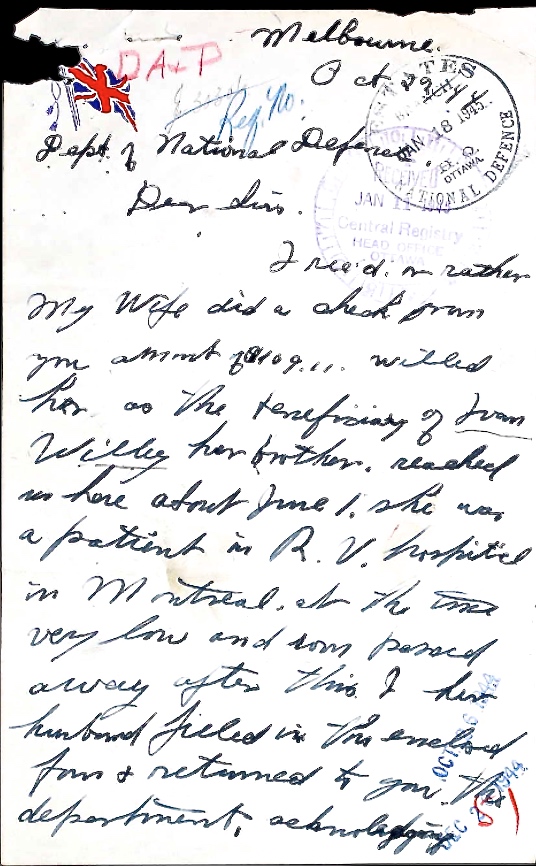 Melbourne.
DA+P
Oct 29, 44
Reg. No.
Dept of National Defence.
Dear Sirs.
JAN 18 1945
OTTAWA
NATIONAL DEFENCE
RECEIVED
JAN
Central Registry
HEAD OFFICE
OTTAWA
I rec'd. or rather
My Wife did a check from
you amount of $109... willed
her as the beneficiary of Ivan
Willey her brother. reached
us here about June 1, she was
a patient in R. V. hospital
in Montreal. at the time
very low and soon passed
away after this. I her
husband filled in the enclosed
form & returned to you. The
department, acknowledging
OCT 1944
DEC 2 1944